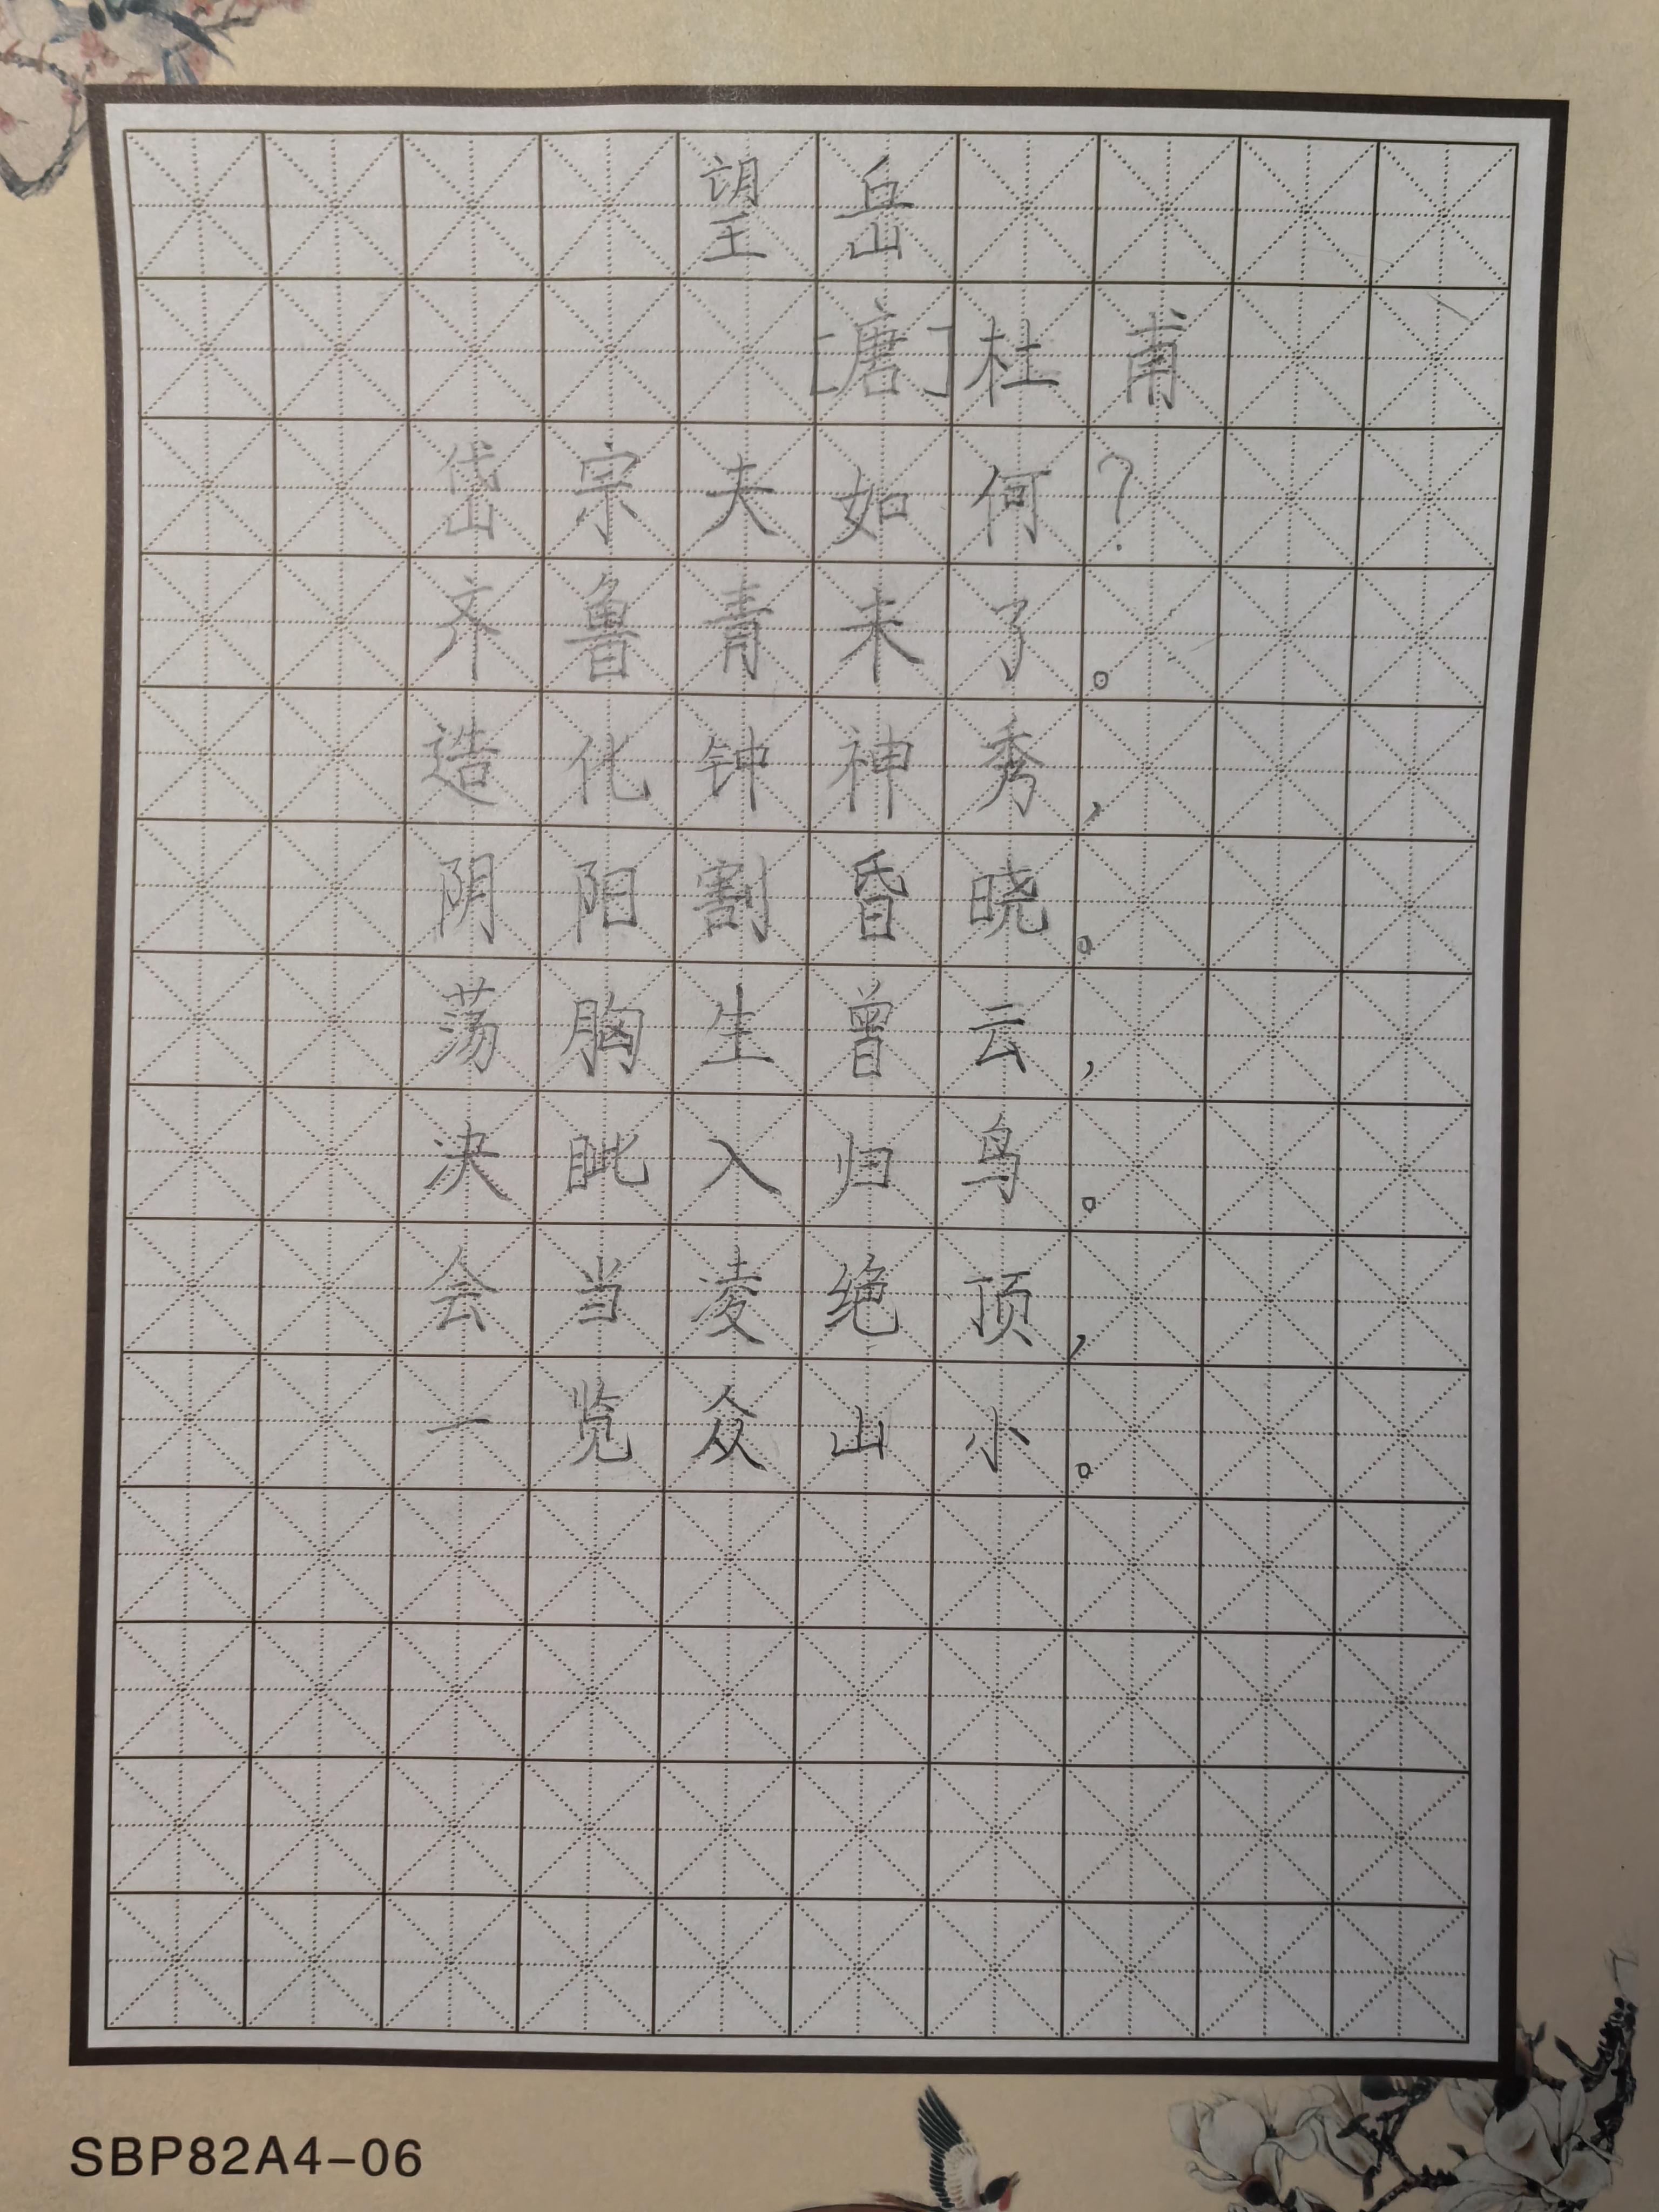 望岳
[唐]杜甫
岱宗夫如何?
齐鲁青未了。
造化钟神秀,
阴阳割昏晓。
荡胸生曾云,
决眦入归鸟。
会当凌绝顶,
一览众山小。
SBP82A4-06